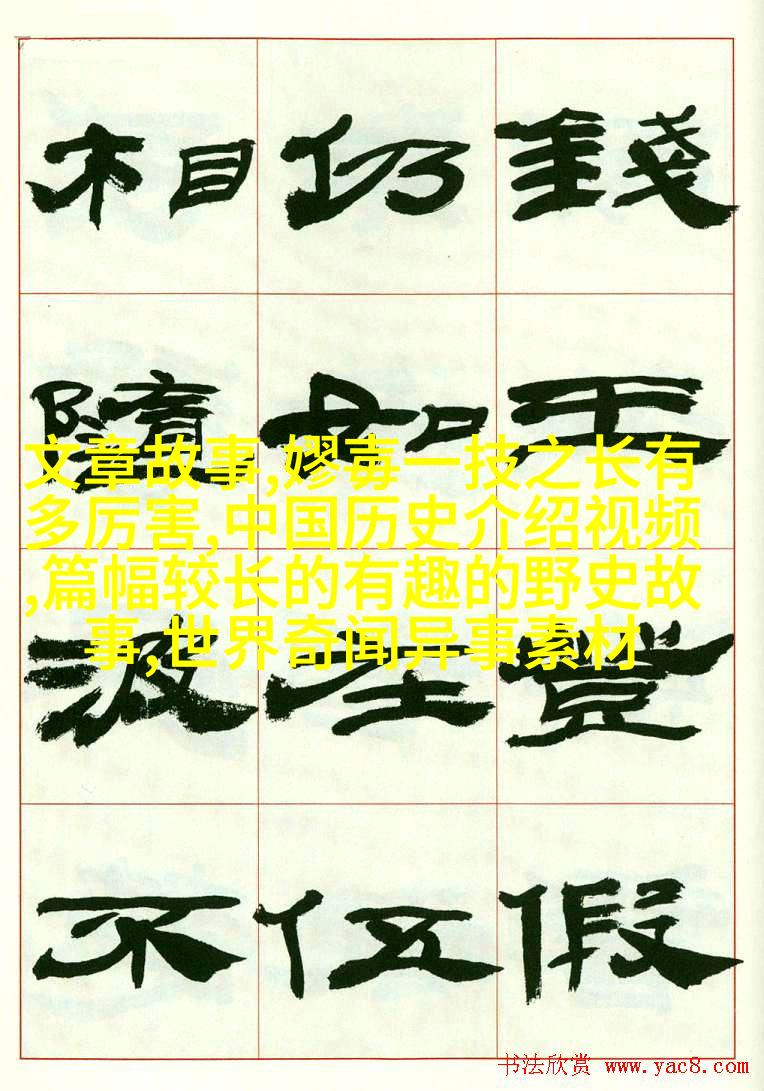 錢王登假
仍如伍
相隨汲不
文章故事,嫪毐一技之长有
多厉害,中国历史介绍视频
,篇幅较长的有趣的野史故
事,世界奇闻异事素材
书法欣赏 www.yac8.com